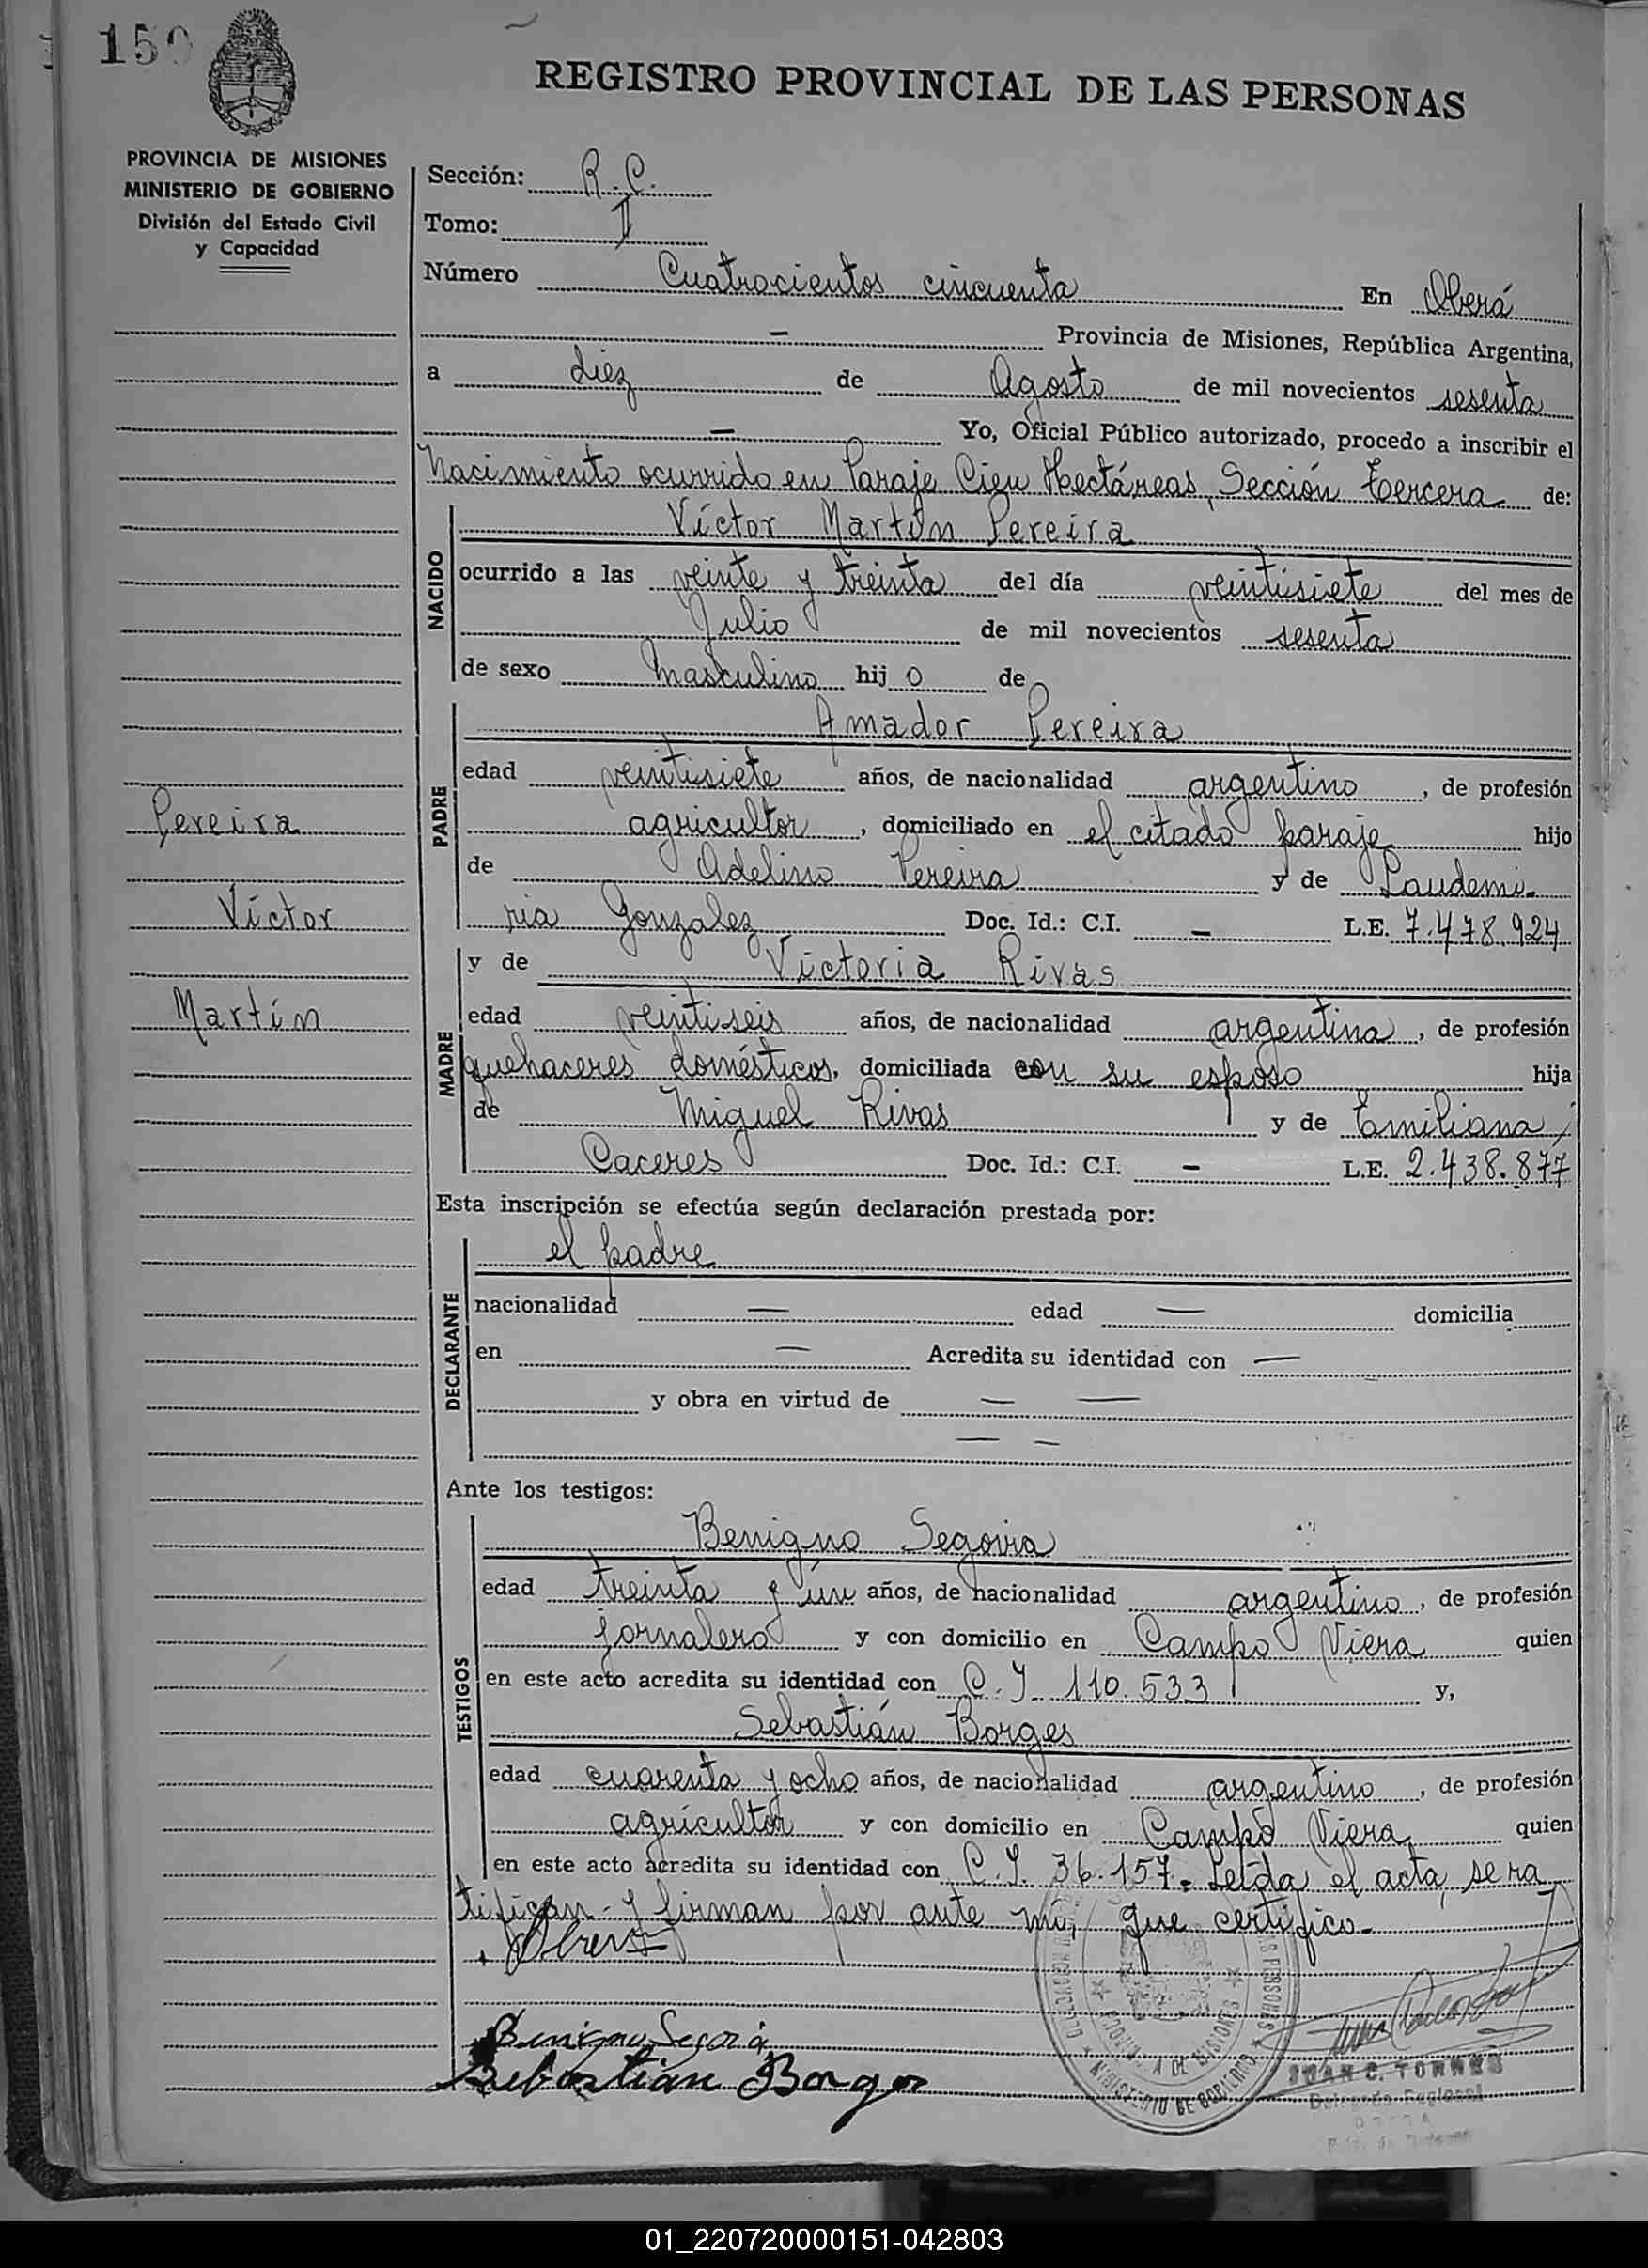 150
REGISTRO PROVINCIAL DE LAS PERSONAS
PROVINCIA DE MISIONES
MINISTERIO DE GOBIERNO
División del Estado Civil
y Capacidad
Sección: R.C.
Tomo: I
Número Cuatrocientos cincuenta En Oberá
— Provincia de Misiones, República Argentina,
a diez de Agosto de mil novecientos sesenta
— Yo, Oficial Público autorizado, procedo a inscribir el
Nacimiento ocurrido en Paraje Cien Hectáreas, Sección Tercera de:
NACIDO
Víctor Martín Pereira
ocurrido a las veinte y treinta del día veintisiete del mes de
Julio de mil novecientos sesenta
de sexo Masculino hijo de
PADRE
Amador Pereira
edad veintisiete años, de nacionalidad argentino, de profesión
agricultor, domiciliado en el citado paraje hijo
de Adelino Pereira y de Laudemi-
ria Gonzalez Doc. Id.: C.I. — L.E. 7.478.924
Pereira
Víctor
Martín
MADRE
y de Victoria Rivas
edad veintiseis años, de nacionalidad argentina, de profesión
quehaceres domésticos, domiciliada con su esposo hija
de Miguel Rivas y de Emiliana
Caceres Doc. Id.: C.I. — L.E. 2.438.877
Esta inscripción se efectúa según declaración prestada por:
DECLARANTE
el padre
nacionalidad — edad — domicilia
en — Acredita su identidad con —
y obra en virtud de — —
— —
Ante los testigos:
TESTIGOS
Benigno Segovia
edad treinta y un años, de nacionalidad argentino, de profesión
jornalero y con domicilio en Campo Viera quien
en este acto acredita su identidad con C.I. 110.533 y,
Sebastián Borges
edad cuarenta y ocho años, de nacionalidad argentino, de profesión
agricultor y con domicilio en Campo Viera quien
en este acto acredita su identidad con C.I. 36.157. Leída el acta, se ra
tifican y firman por ante mí, que certifico.
Benigno Segovia
Sebastian Borges
MINISTERIO DE GOBIERNO
JUAN C. TORRES
Delegado Regional
01_220720000151-042803